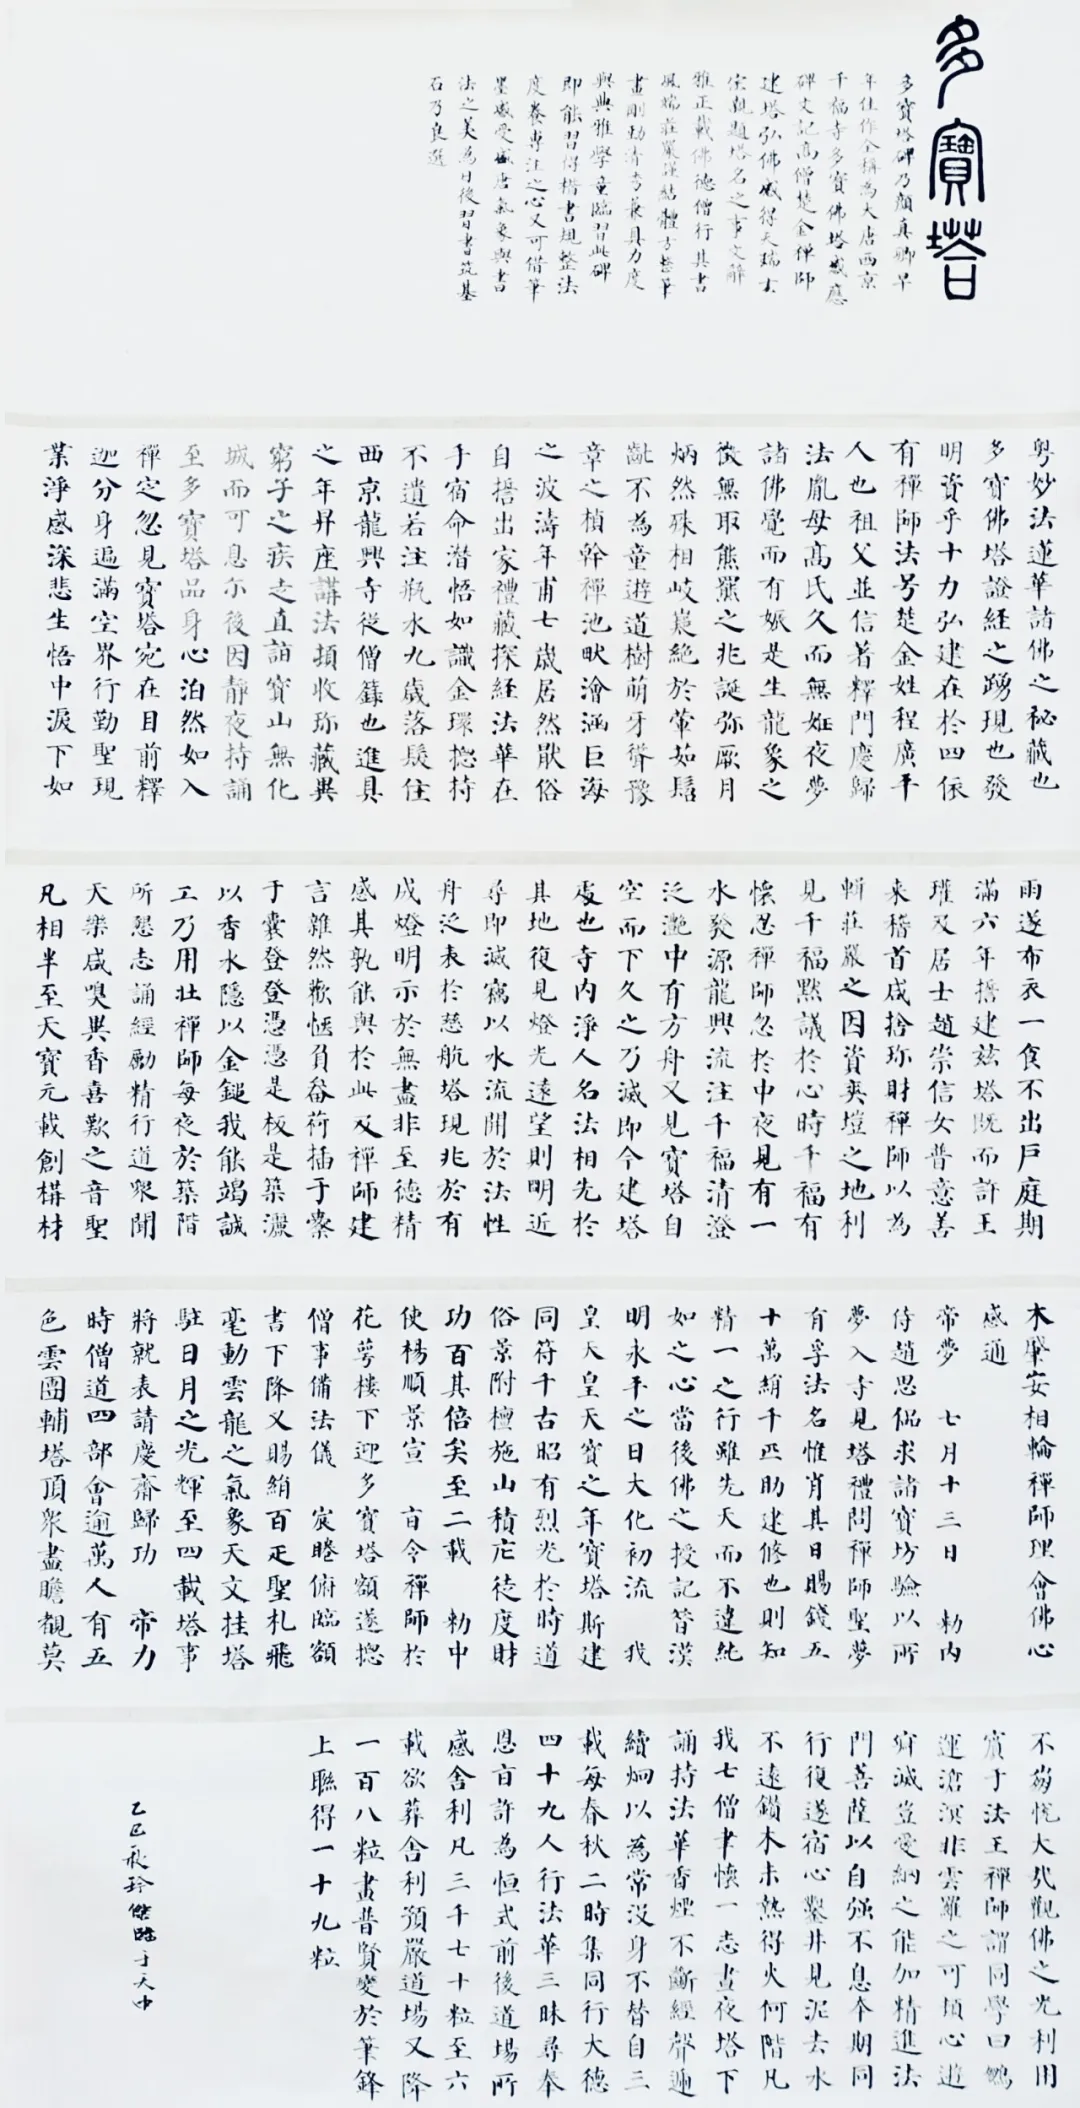 多寶塔
多寶塔碑乃顏真卿早
年佳作全稱為大唐西京
千福寺多寶佛塔感應
碑文記高僧楚金禪師
建塔弘佛感得天瑞玄
宗親題塔名之事文辭
雅正載佛德僧行其書
風端莊嚴謹結體方整筆
畫剛勁清秀兼具力度
與典雅學童臨習此碑
即能習得楷書規整法
度養專注之心又可借筆
墨感受盛唐氣象與書
法之美為日後習書築基
石乃良選
粵妙法蓮華諸佛之秘藏也
多寶佛塔證經之踴現也發
明資乎十力弘建在於四依
有禪師法号楚金姓程廣平
人也祖父並信著釋門慶歸
法胤母高氏久而無姙夜夢
諸佛覺而有娠是生龍象之
徵無取熊羆之兆誕弥厥月
炳然殊相岐嶷絶於葷茹髫
齔不為童遊道樹萌牙聳豫
章之楨幹禪池畎澮涵巨海
之波濤年甫七歲居然猒俗
自誓出家禮藏探經法華在
手宿命潛悟如識金環揔持
不遺若注瓶水九歲落髮住
西京龍興寺從僧籙也進具
之年昇座講法頓收珎藏異
窮子之疾走直詣寶山無化
城而可息尒後因靜夜持誦
至多寶塔品身心泊然如入
禪定忽見寶塔宛在目前釋
迦分身遍滿空界行勤聖現
業淨感深悲生悟中淚下如
雨遂布衣一食不出戶庭期
滿六年誓建兹塔既而許王
瓘及居士趙崇信女普意善
来稽首咸捨珎財禪師以為
輯莊嚴之因資爽塏之地利
見千福默議於心時千福有
懷忍禪師忽於中夜見有一
水發源龍興流注千福清澄
泛灧中有方舟又見寶塔自
空而下久之乃滅即今建塔
處也寺內淨人名法相先於
其地復見燈光遠望則明近
尋即滅竊以水流開於法性
舟泛表於慈航塔現兆於有
成燈明示於無盡非至德精
感其孰能與於此及禪師建
言雜然歡愜負畚荷插于橐
于囊登登憑憑是板是築灑
以香水隱以金鎚我能竭誠
工乃用壯禪師每夜於築階
所懇志誦經勵精行道衆聞
天樂咸嗅異香喜歎之音聖
凡相半至天寶元載創構材
木肇安相輪禪師理會佛心
感通
帝夢 七月十三日 勅內
侍趙思侃求諸寶坊驗以所
夢入寺見塔禮問禪師聖夢
有孚法名惟肖其日賜錢五
十萬絹千匹助建修也則知
精一之行雖先天而不違純
如之心當後佛之授記昔漢
明永平之日大化初流 我
皇天皇天寶之年寶塔斯建
同符千古昭有烈光於時道
俗景附檀施山積庀徒度財
功百其倍矣至二載 勅中
使楊順景宣 旨令禪師於
花萼樓下迎多寶塔額遂揔
僧事備法儀 宸睠俯臨額
書下降又賜絹百疋聖札飛
毫動雲龍之氣象天文挂塔
駐日月之光輝至四載塔事
將就表請慶齋歸功 帝力
時僧道四部會逾萬人有五
色雲團輔塔頂衆盡瞻覩莫
不崩悅大哉觀佛之光利用
賓于法王禪師謂同學曰鵬
運滄溟非雲羅之可頓心遊
寂滅豈愛網之能加精進法
門菩薩以自强不息本期同
行復遂宿心鑿井見泥去水
不遠鑽木未熱得火何階凡
我七僧聿懷一志晝夜塔下
誦持法華香煙不斷經聲遞
續炯以為常沒身不替自三
載每春秋二時集同行大德
四十九人行法華三昧尋奉
恩旨許為恒式前後道場所
感舍利凡三千七十粒至六
載欲葬舍利預嚴道場又降
一百八粒畫普賢變於筆鋒
上聯得一十九粒
乙巳秋玲傑臨于天中